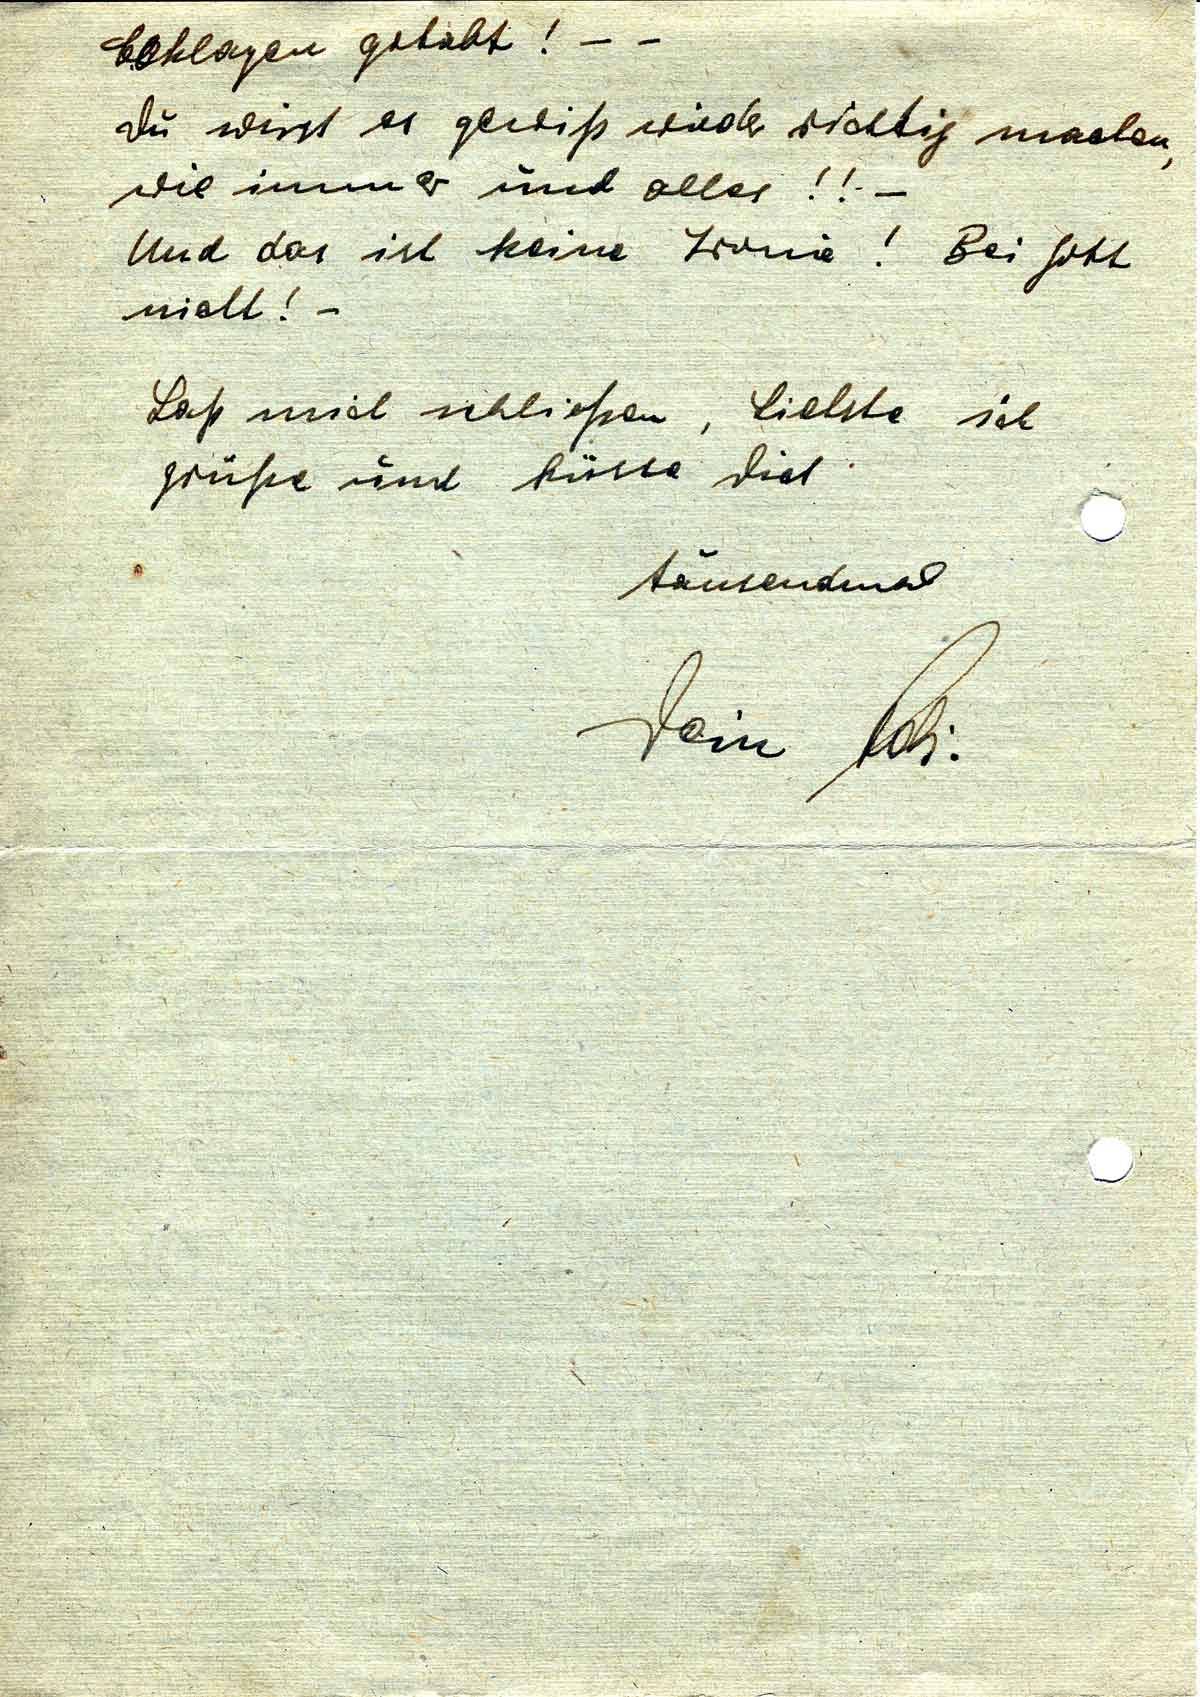 gehabt! – –
Du wirst es gewiß wieder richtig machen,
wie immer und alles!! –
Und das ist keine Ironie! Bei Gott
nicht! –
Laß mich schließen, Liebste ich
grüße und küsse Dich
tausendmal
Dein